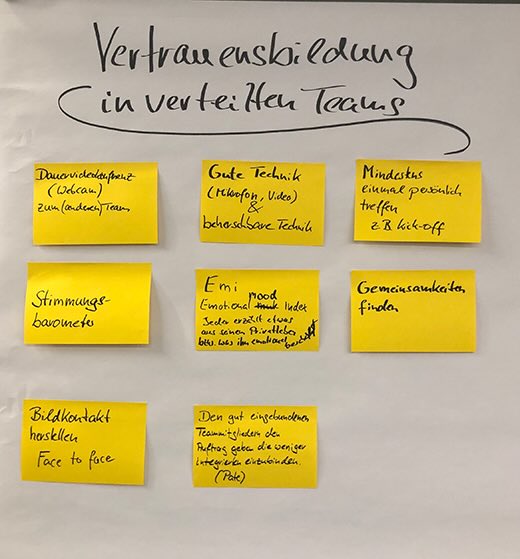 Vertrauensbildung
in verteilten Teams
Dauervideokonferenz
(Webcam)
zum (anderen) Team
Gute Technik
(Mikrofon, Video)
&
beherschbare Technik
Mindestens
einmal persönlich
treffen
z.B. Kick-off
Stimmungs-
barometer
Emi
Emotional mood Index
Jeder erzählt etwas
aus seinem Privatleben
bzw. was ihn emotional
Gemeinsamkeiten
finden
Bildkontakt
herstellen
Face to face
Den gut eingebundenen
Teammitgliedern den
Auftrag geben die weniger
integrierten einzubinden.
(Pate)